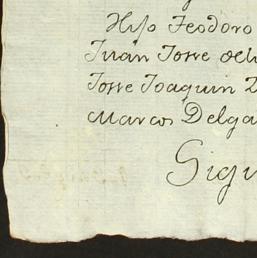 Hijo Feodoro
Juan Torre
Torre Joaquin
Marcos Delga
Sigu